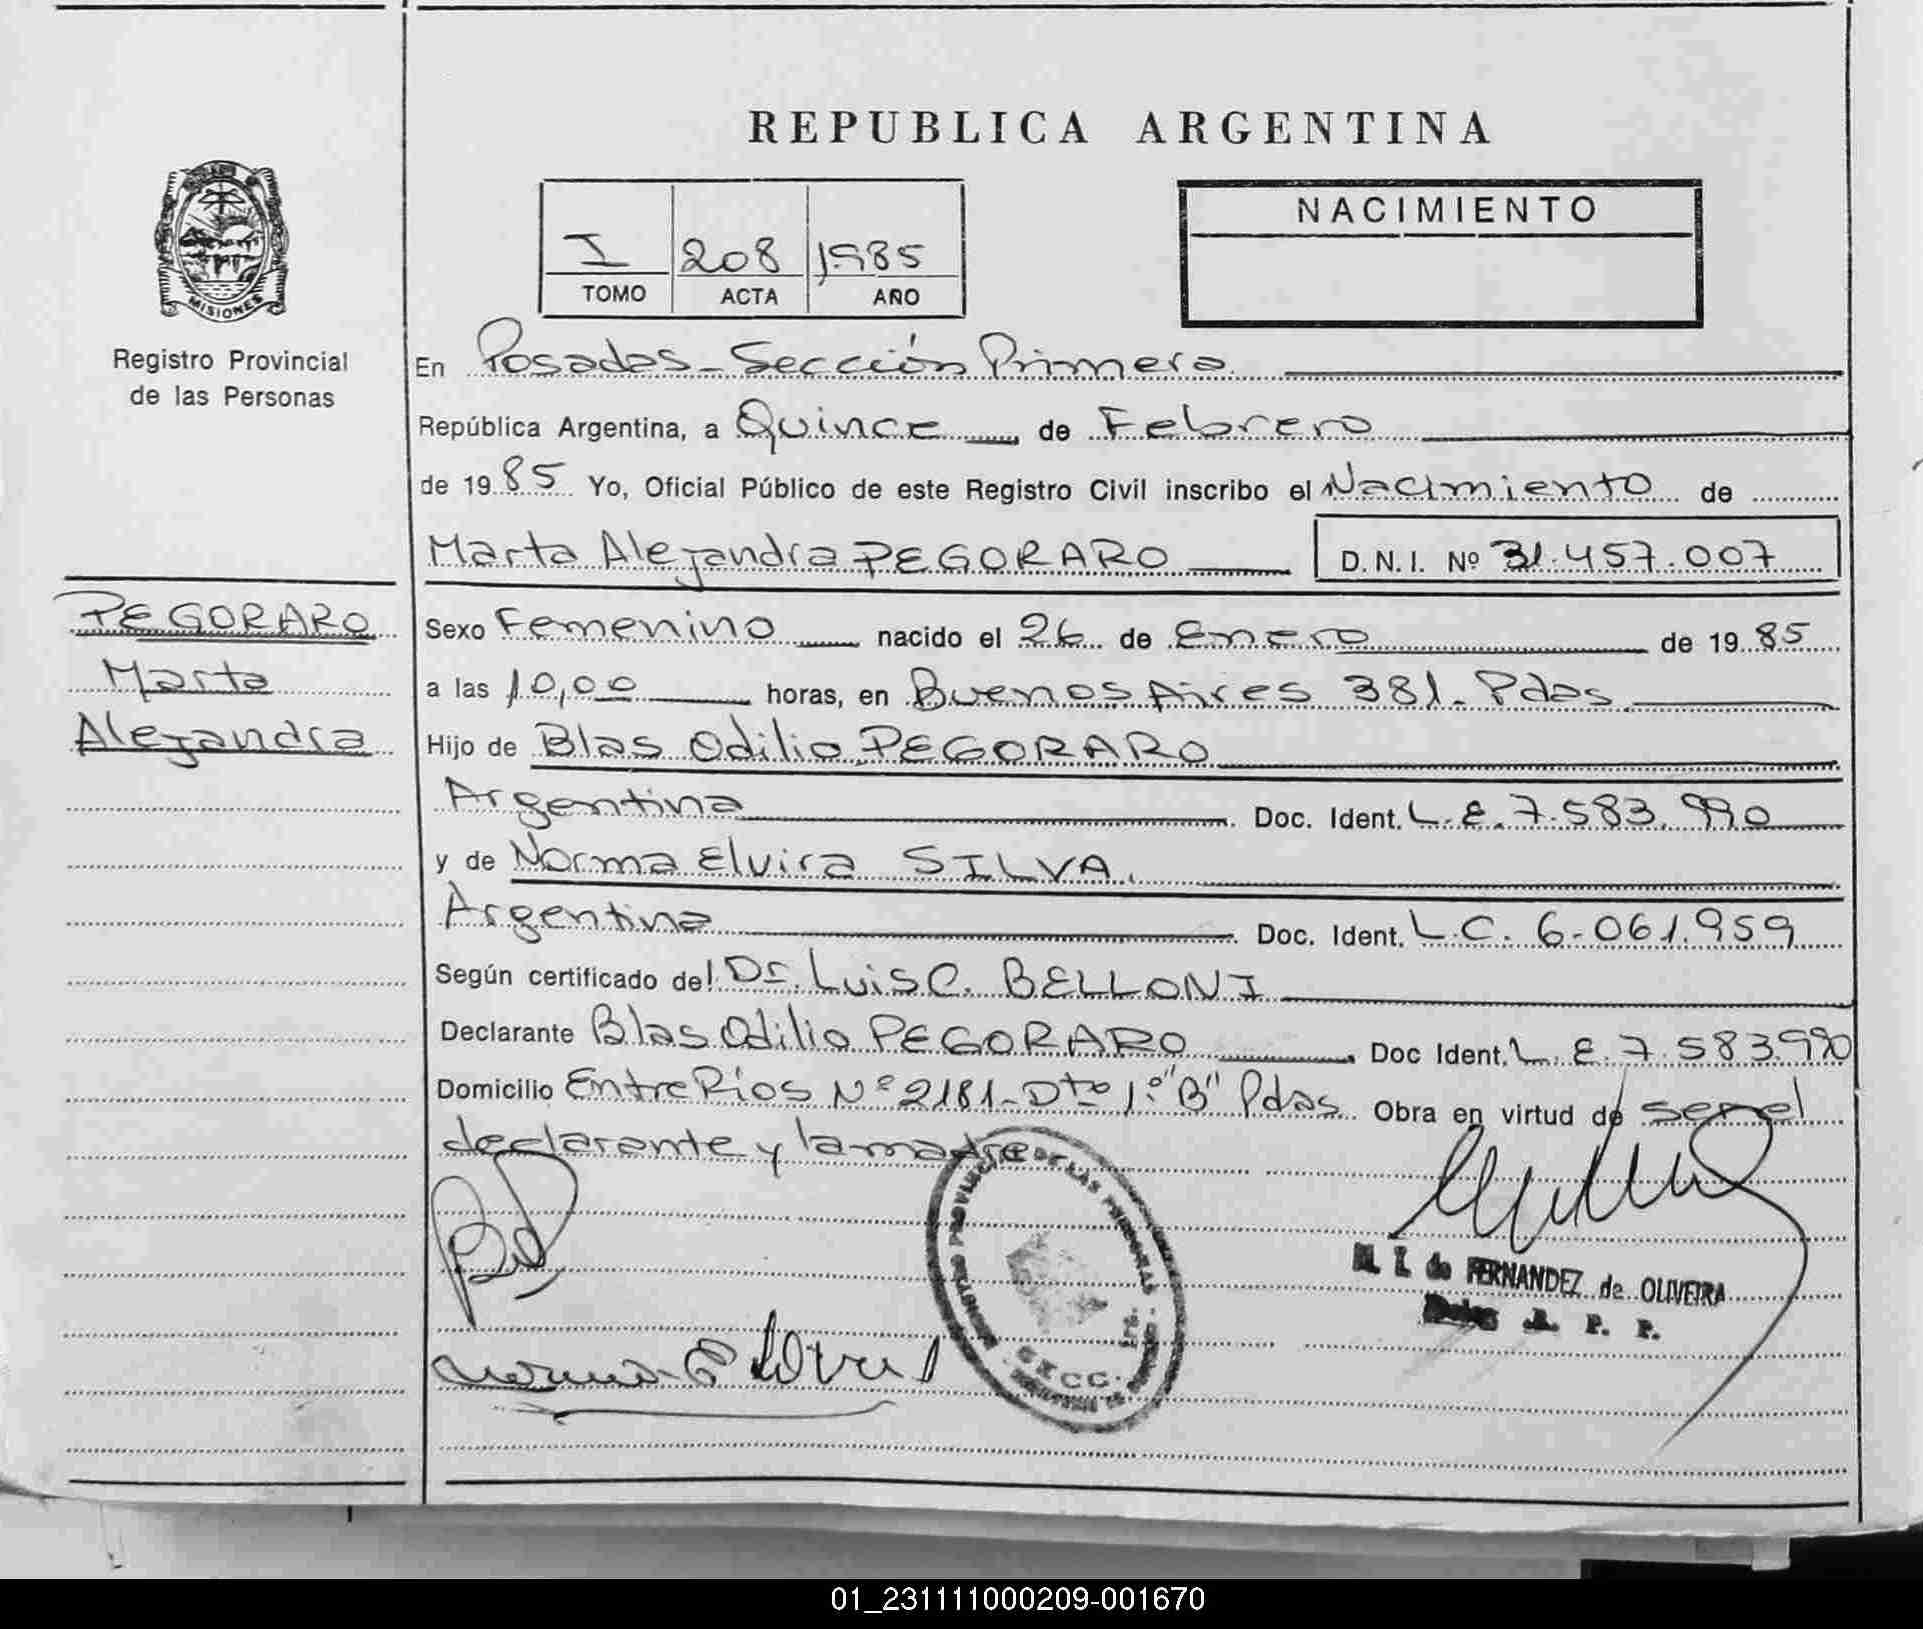 REPUBLICA ARGENTINA
MISIONES
Registro Provincial
de las Personas
I 208 1985
TOMO ACTA AÑO
NACIMIENTO
En Posadas - Sección Primera
República Argentina, a Quince de Febrero
de 1985 Yo, Oficial Público de este Registro Civil inscribo el Nacimiento de
Marta Alejandra PEGORARO D.N.I. Nº 31.457.007
PEGORARO
Marta
Alejandra
Sexo Femenino nacido el 26 de Enero de 1985
a las 10,00 horas, en Buenos Aires 381 - Pdas
Hijo de Blas Odilio PEGORARO
Argentina Doc. Ident. L.E. 7.583.990
y de Norma Elvira SILVA.
Argentina Doc. Ident. L.C. 6.061.959
Según certificado del Dr. Luis C. BELLONI
Declarante Blas Odilio PEGORARO Doc Ident. L.E. 7.583.990
Domicilio Entre Ríos Nº 2181 - Dto 1º "B" Pdas Obra en virtud de ser el
declarante y la madre
REGISTRO PROVINCIAL DE LAS PERSONAS
M. I. de FERNANDEZ de OLIVEIRA
R. P. P.
01_231111000209-001670